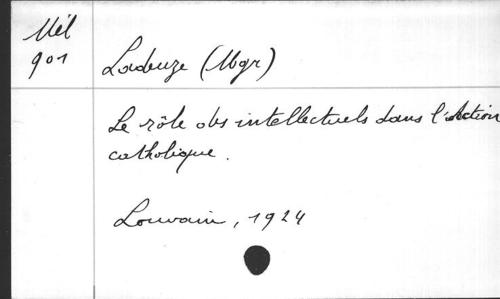 Mél
901
Ladeuze (Mgr)
Le rôle des intellectuels dans l'Action
catholique.
Louvain, 1924